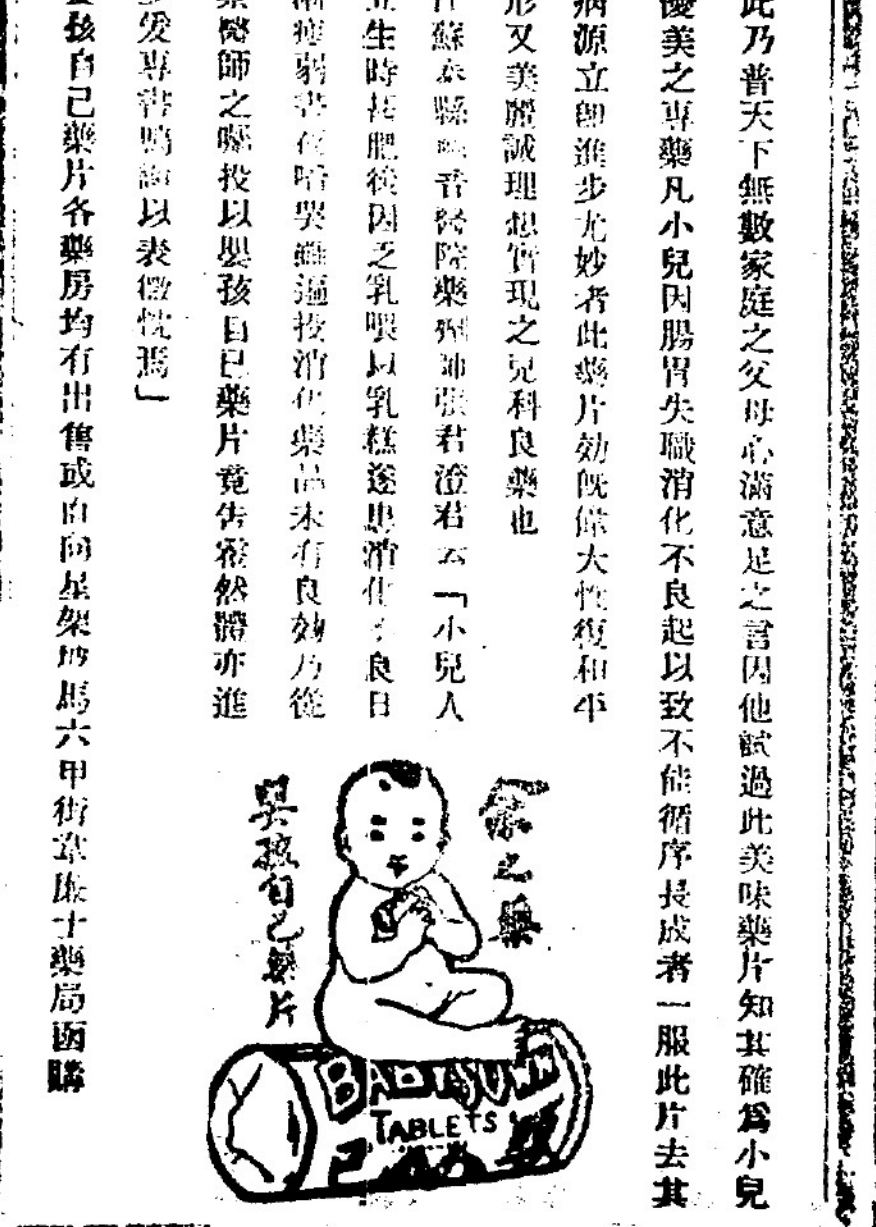 此乃普天下無數家庭之父母心滿意足之言因他試過此美味藥片知其確為小兒
優美之専藥凡小兒因腸胃失職消化不良起以致不能循序長成者一服此片去其
病源立卽進步尤妙者此藥片効旣偉大性復和平
形又美麗誠理想實現之兒科良藥也
蘇泰縣 音醫院藥劑師張君澄君云「小兒人
生時甚肥後因乏乳喂以乳糕遂患消化不良日
漸瘦弱晝夜啼哭雖遍投消化藥品未有良効乃從
藥醫師之囑投以嬰孩自己藥片竟告霍然體亦進
爰専書鳴謝以表微忱焉」
嬰孩自己藥片各藥房均有出售或直向星架坡馬六甲街韋廉士藥局函購
余之藥
嬰孩自己藥片
BABY'S OWN
TABLETS